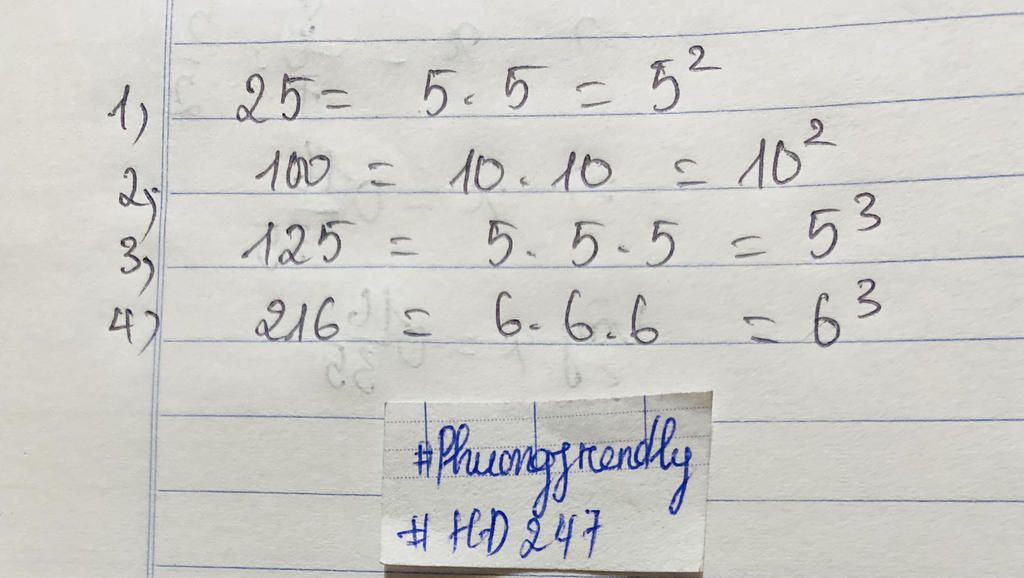 1) 25 = 5 . 5 = 5²
2) 100 = 10 . 10 = 10²
3) 125 = 5 . 5 . 5 = 5³
4) 216 = 6 . 6 . 6 = 6³
#Phuongfrendly
# HD 247